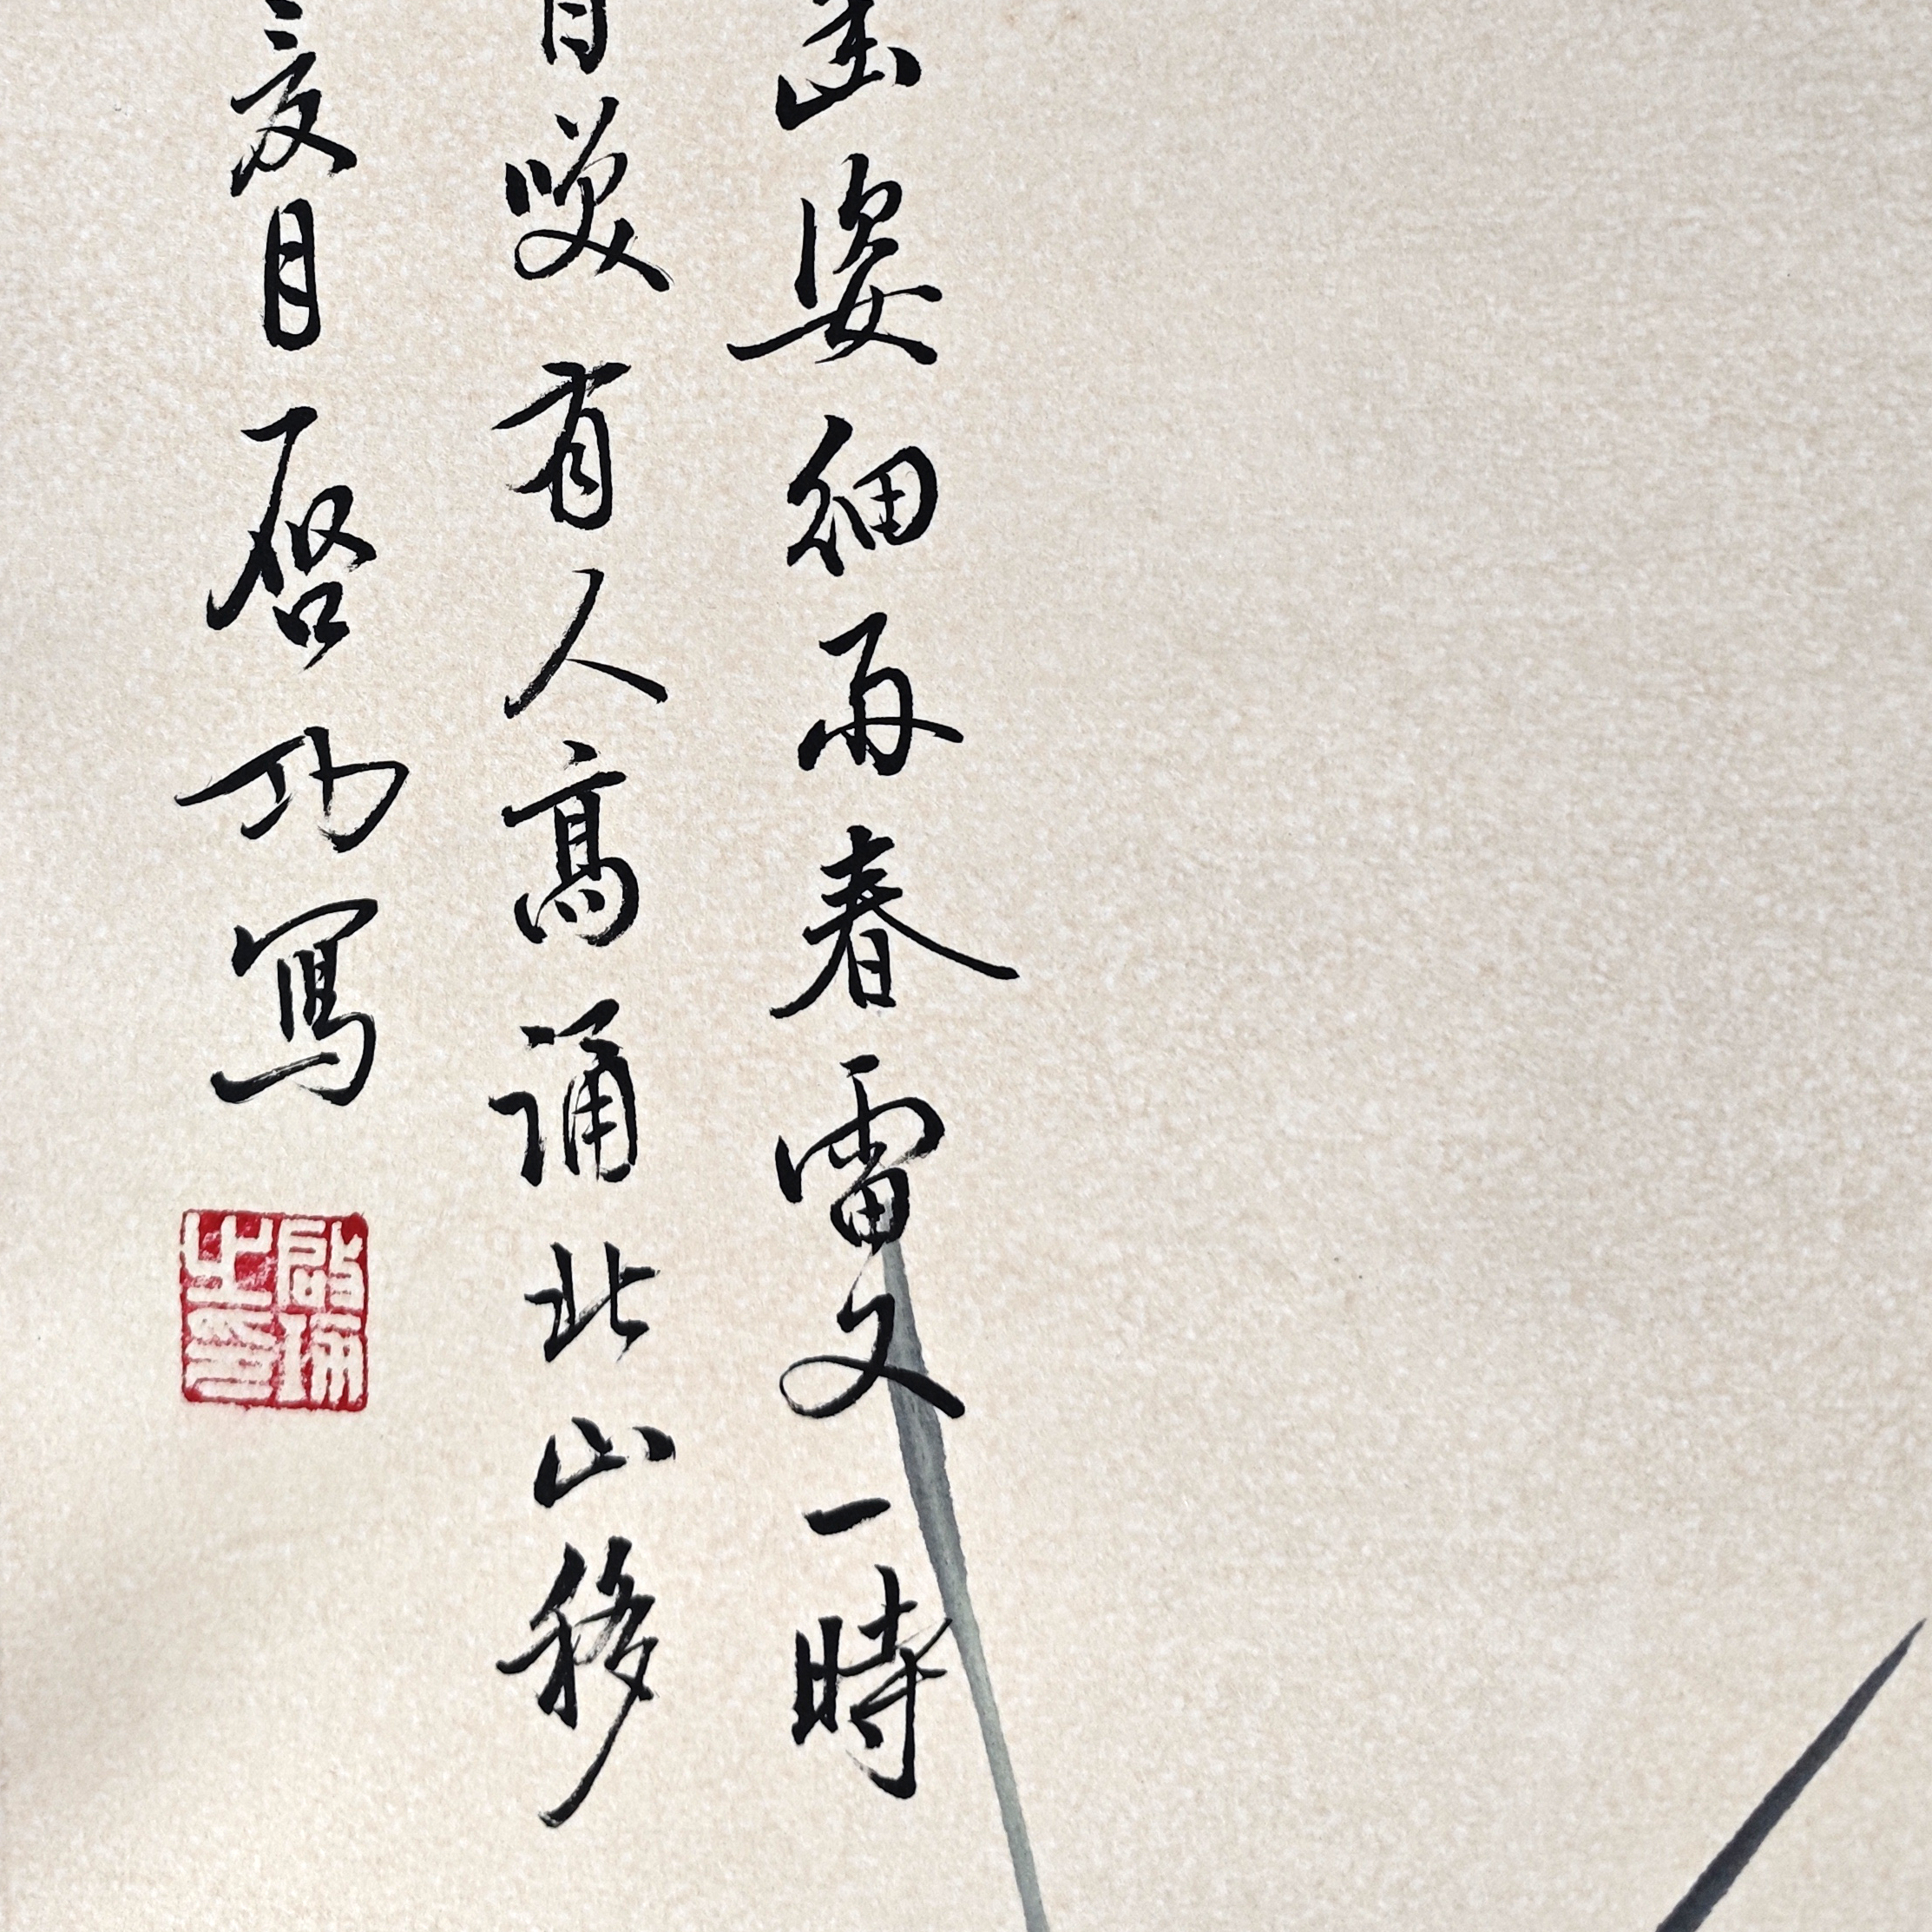 姿細雨春雷又一時
咲有人高誦北山移
夏日啓功寫
啟珊之印